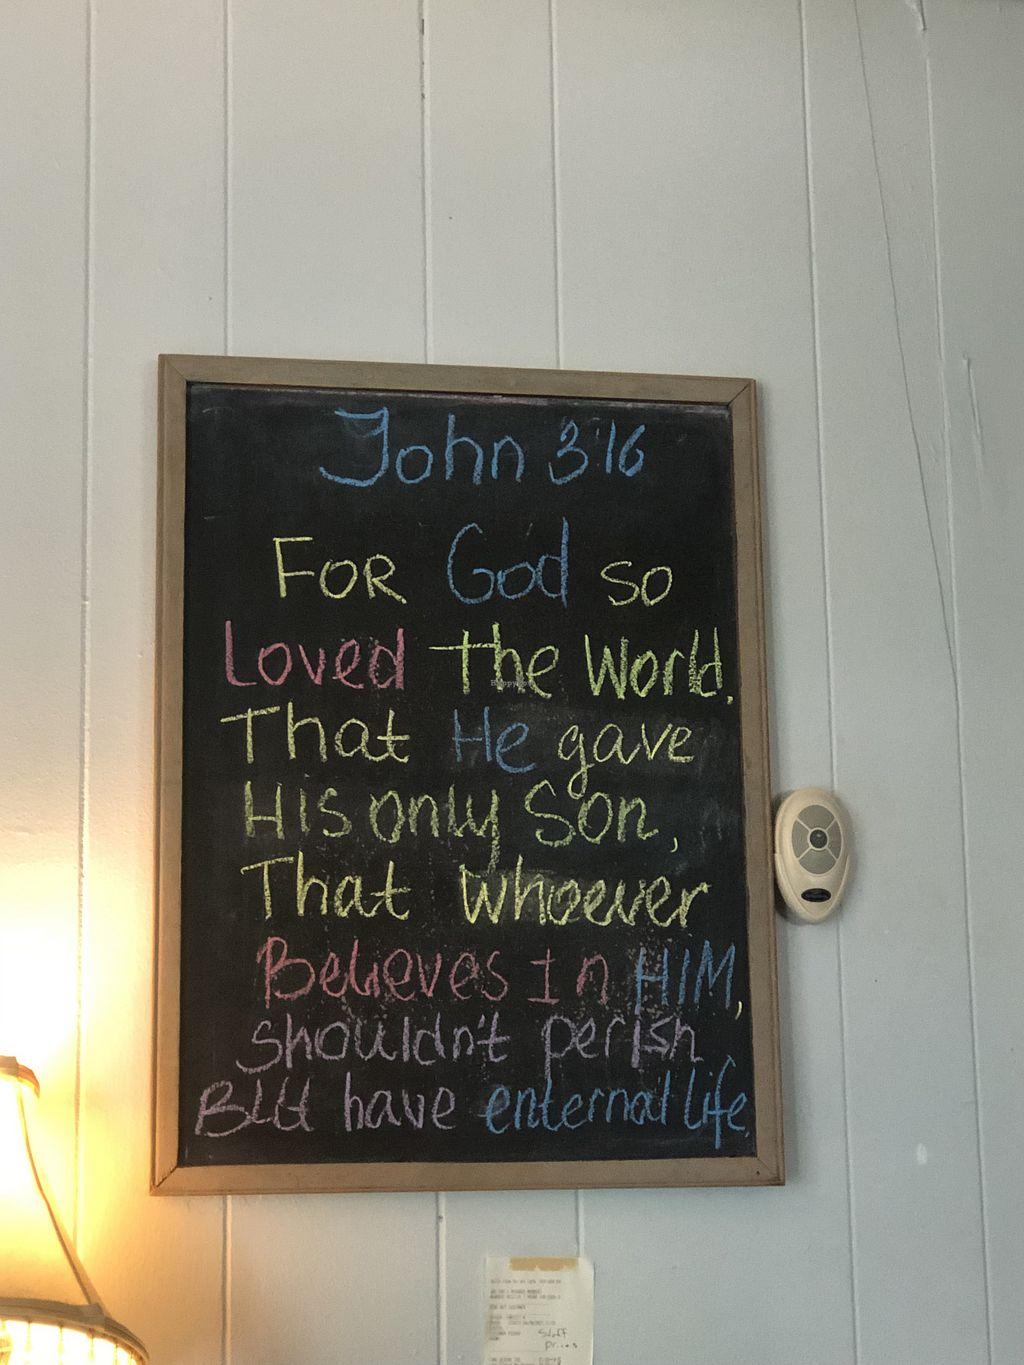 John 3:16
FOR God so
Loved the World,
That He gave
His only Son,
That whoever
Believes In HIM,
shouldn't perish
But have enternal life,
HappyCow
Staff